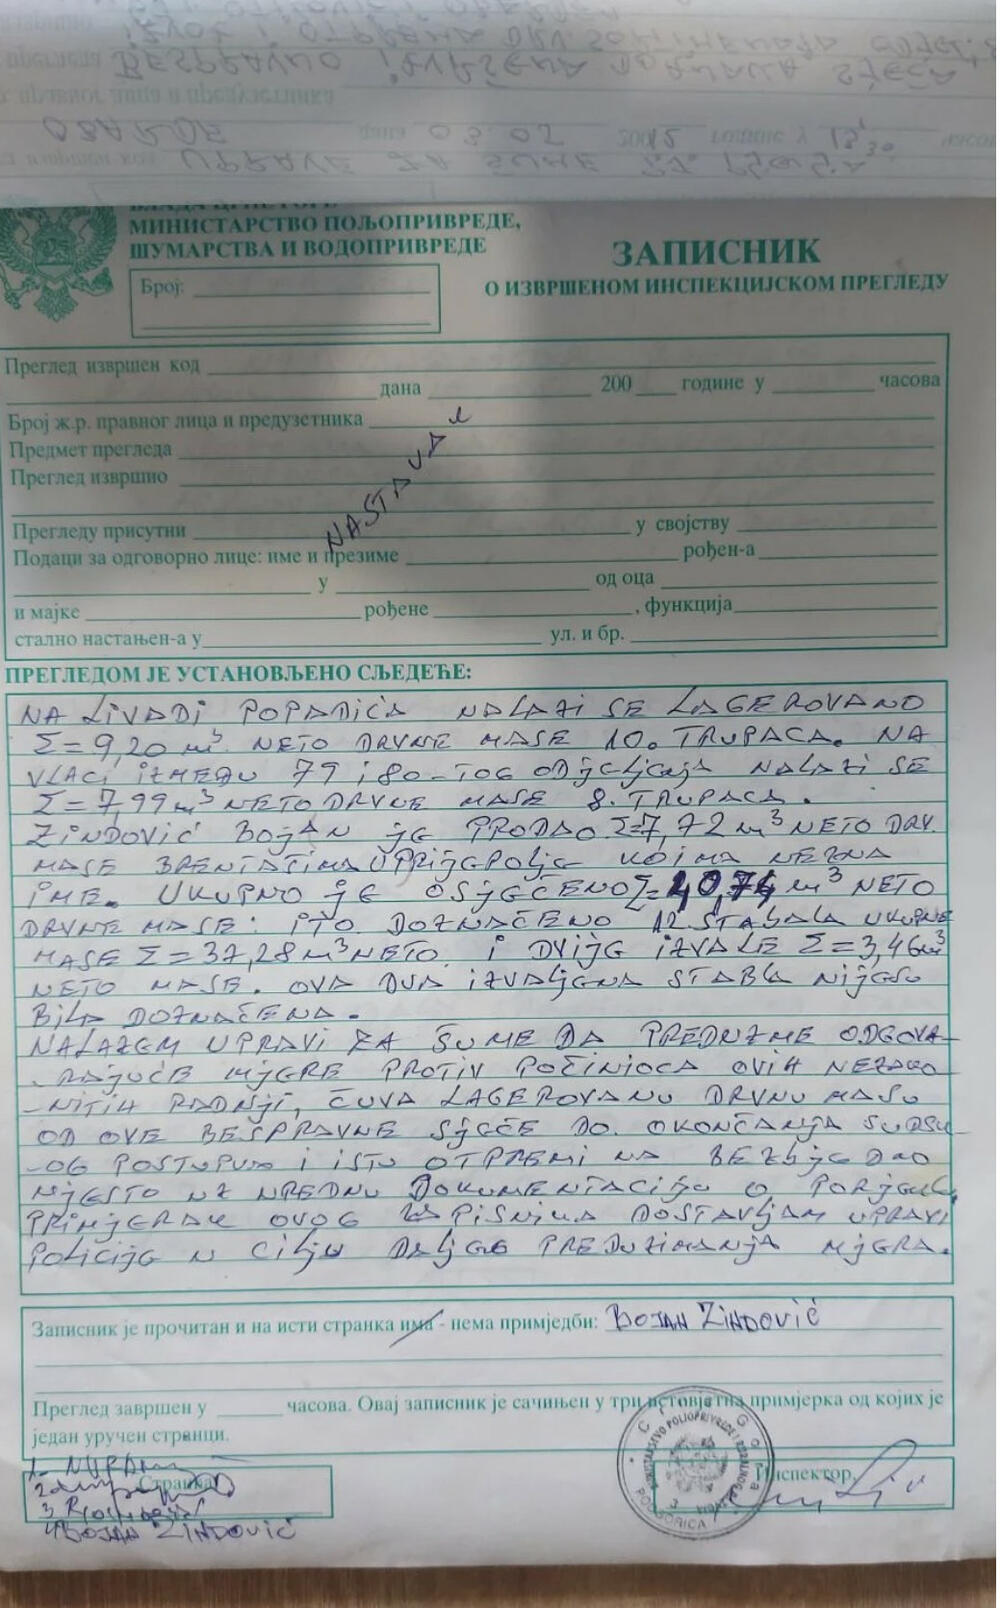 UPRAVE ZA ŠUME PJ. PLJEVLJA
OBARDE дана 03.07 20012 године у 13,30 часова
BESPRAVNO IZVRŠENA DOZNAKA SJEČA
МИНИСТАРСТВО ПОЉОПРИВРЕДЕ,
ШУМАРСТВА И ВОДОПРИВРЕДЕ
ЗАПИСНИК
О ИЗВРШЕНОМ ИНСПЕКЦИЈСКОМ ПРЕГЛЕДУ
Број:
Преглед извршен код
дана 200 године у часова
Број ж.р. правног лица и предузетника
Предмет прегледа
Преглед извршио
NASTAVAK
Прегледу присутни у својству
Подаци за одговорно лице: име и презиме рођен-а
у од оца
и мајке рођене , функција
стално настањен-а у ул. и бр.
ПРЕГЛЕДОМ ЈЕ УСТАНОВЉЕНО СЉЕДЕЋЕ:
NA LIVADI POPADIĆA NALAZI SE LAGEROVANO
Σ=9,20 m³ NETO DRVNE MASE 10. TRUPACA. NA
VLACI IZMEĐU 79 I 80-TOG ODJELJENJA NALAZI SE
Σ=7,99 m³ NETO DRVNE MASE 8. TRUPACA.
ZINDOVIĆ BOJAN JE PRODAO Σ=7,72 m³ NETO DRV.
MASE BRENTATIMA U PRIJEPOLJE KOJIMA NEZNA
IME. UKUPNO JE OSJEČENO Σ=40,74 m³ NETO
DRVNE MASE: I TO DOZNAČENO 12 STABALA UKUPNE
MASE Σ=37,28 m³ NETO I DVIJE IZVALE Σ=3,46 m³
NETO MASE. OVA DVA IZVALJENA STABLA NIJESU
BILA DOZNAČENA.
NALAŽEM UPRAVI ZA ŠUME DA PREDUZME ODGOVA-
-RAJUĆE MJERE PROTIV POČINIOCA OVIH NEZAKO-
-NITIH RADNJI, ČUVA LAGEROVANU DRVNU MASU
OD OVE BESPRAVNE SJEČE DO OKONČANJA SUDSK-
-OG POSTUPKA I ISTU OTPREMI NA BEZBJEDNO
MJESTO UZ UREDNU DOKUMENTACIJU O PORIJEKLU.
PRIMJERAK OVOG ZAPISNIKA DOSTAVLJAM UPRAVI
POLICIJE U CILJU DALJEG PREDUZIMANJA MJERA.
Записник је прочитан и на исти странка има - нема примједби: BOJAN ZINDOVIĆ
Преглед завршен у часова. Овај записник је сачињен у три истовјетна примјерка од којих је
један уручен странци.
Странка
Инспектор,
4. BOJAN ZINDOVIĆ
PODGORICA